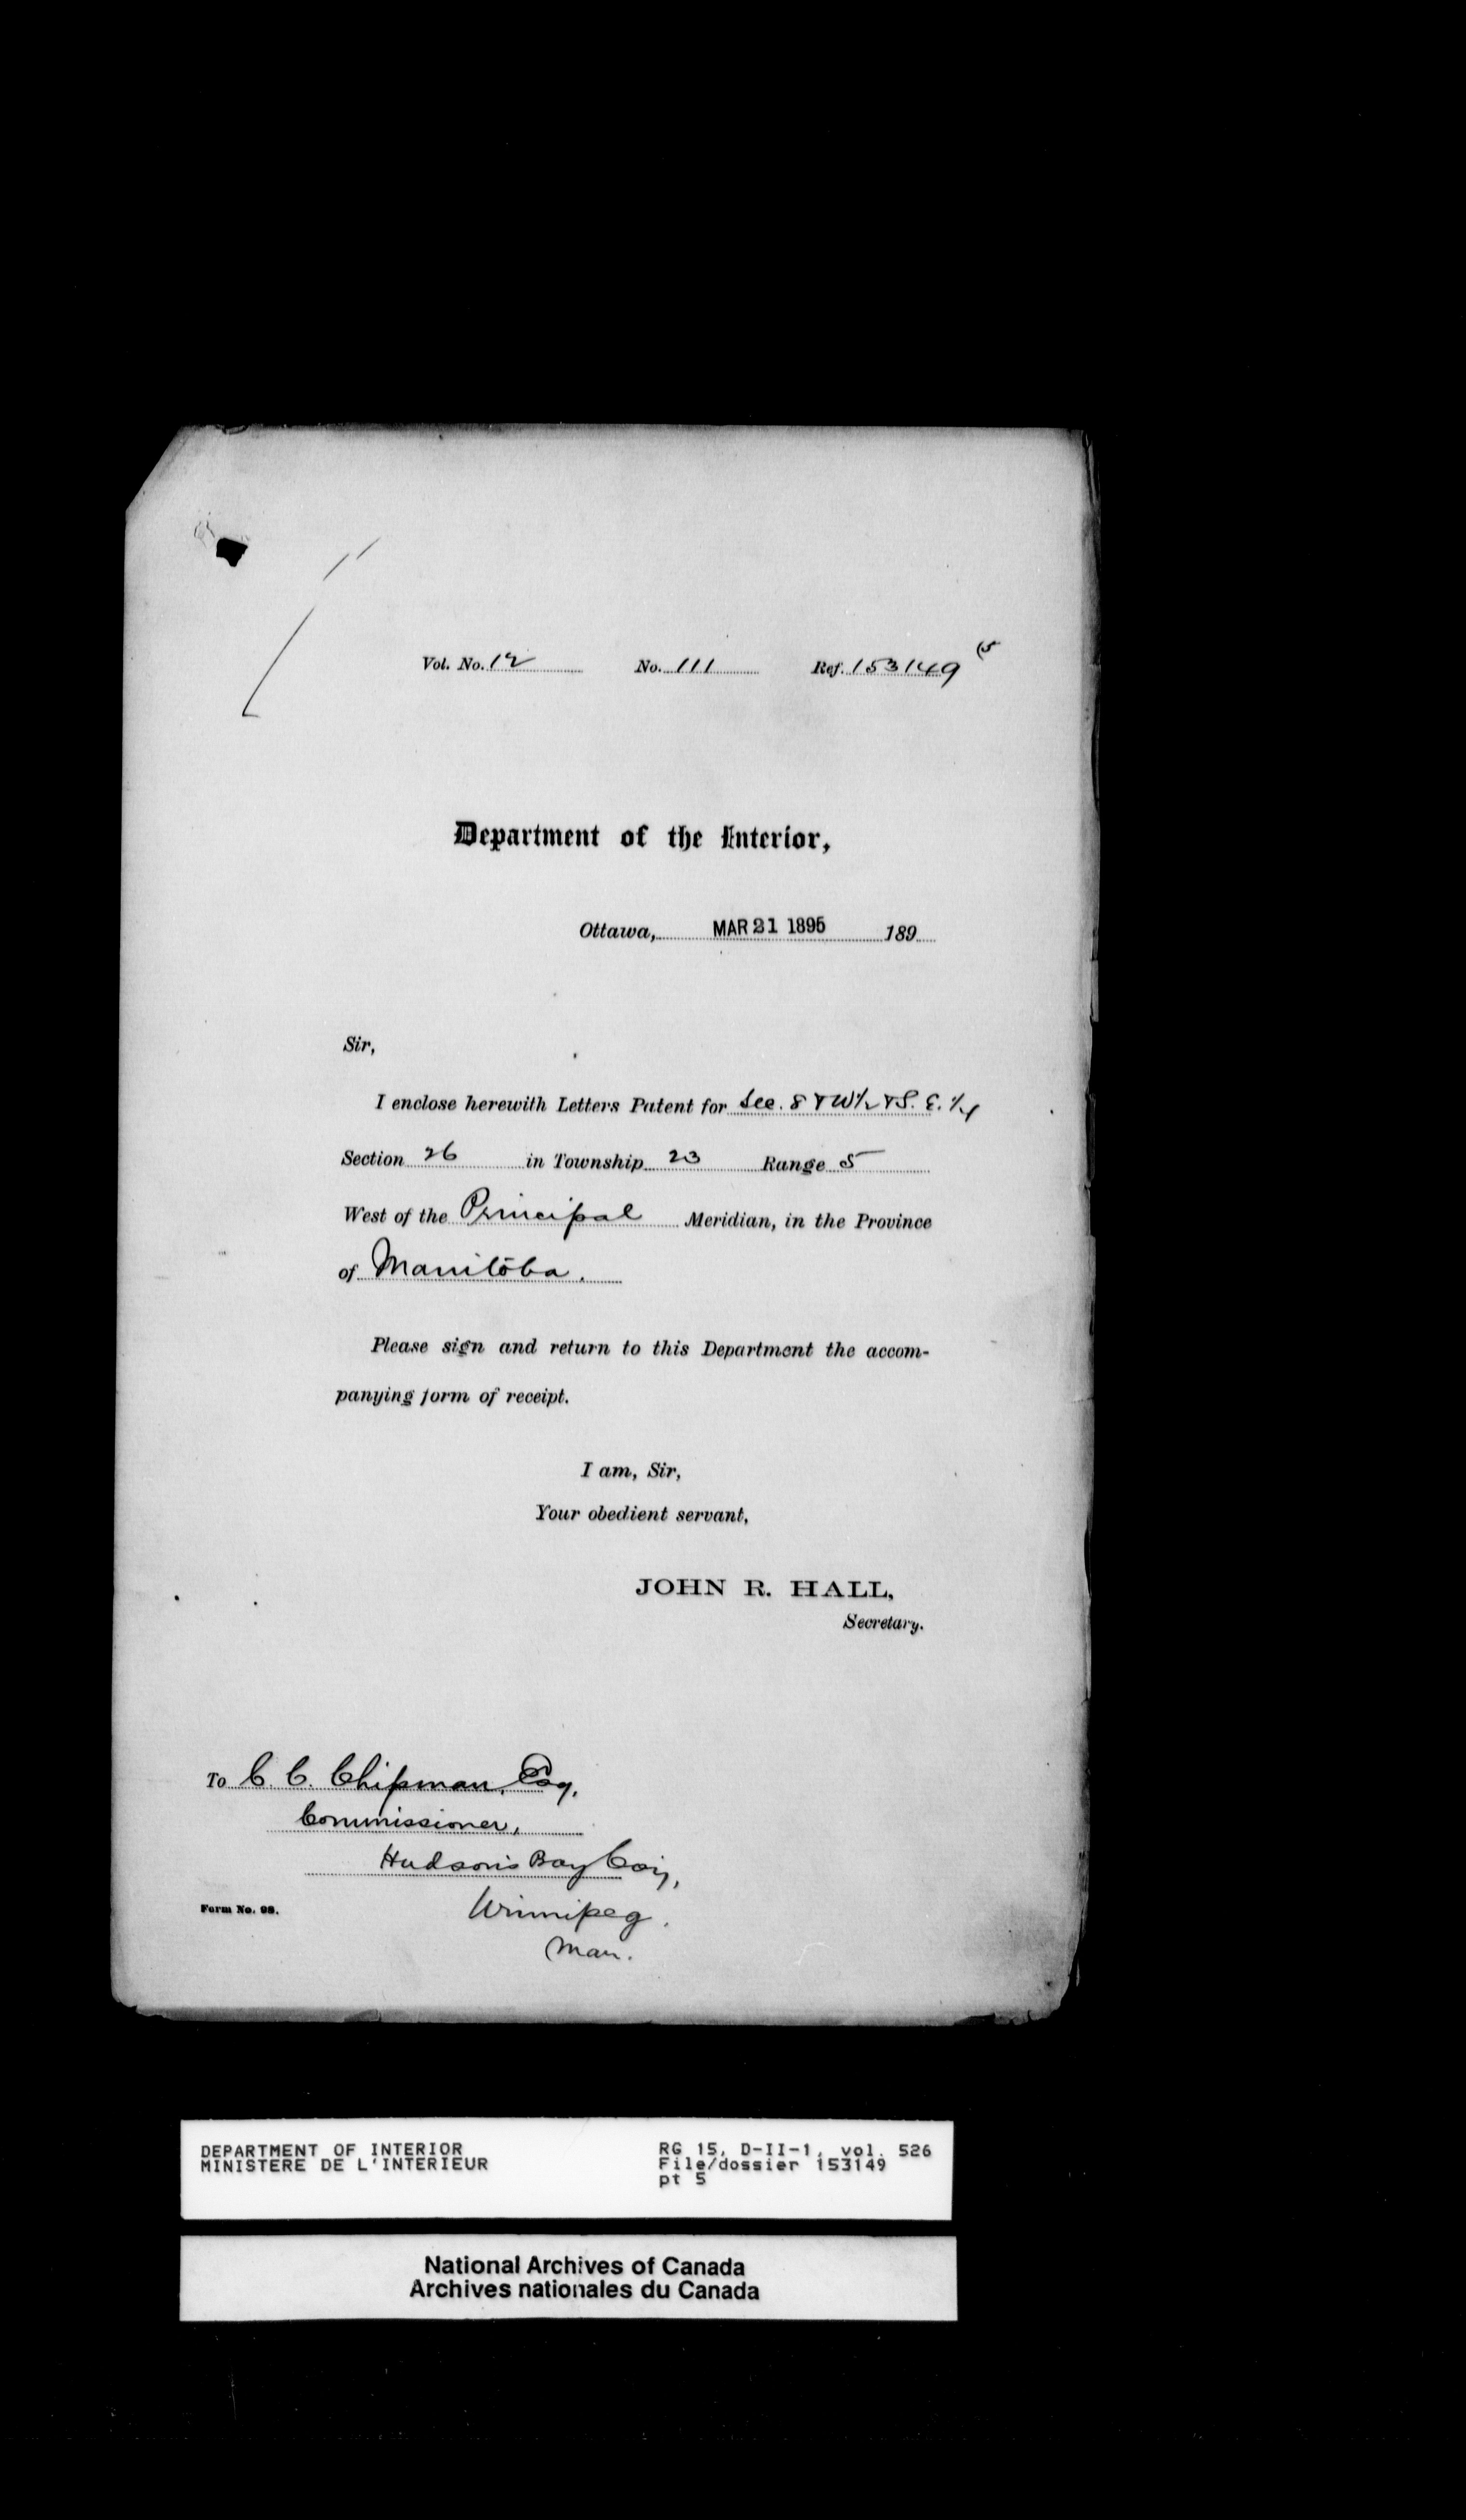 Vol. No. 12 No. 111 Ref. 153149 (5
Department of the Interior,
Ottawa, MAR 21 1895 189
Sir,
I enclose herewith Letters Patent for Sec. 8 & W½ & S. E. ¼
Section 26 in Township 23 Range 5
West of the Principal Meridian, in the Province
of Manitoba.
Please sign and return to this Department the accom-
panying form of receipt.
I am, Sir,
Your obedient servant,
JOHN R. HALL,
Secretary.
To C. C. Chipman, Esq,
Commissioner,
Hudson's Bay Coy,
Form No. 98.
Winnipeg.
Man.
DEPARTMENT OF INTERIOR
MINISTERE DE L'INTERIEUR
RG 15, D-II-1, vol. 526
File/dossier 153149
pt 5
National Archives of Canada
Archives nationales du Canada